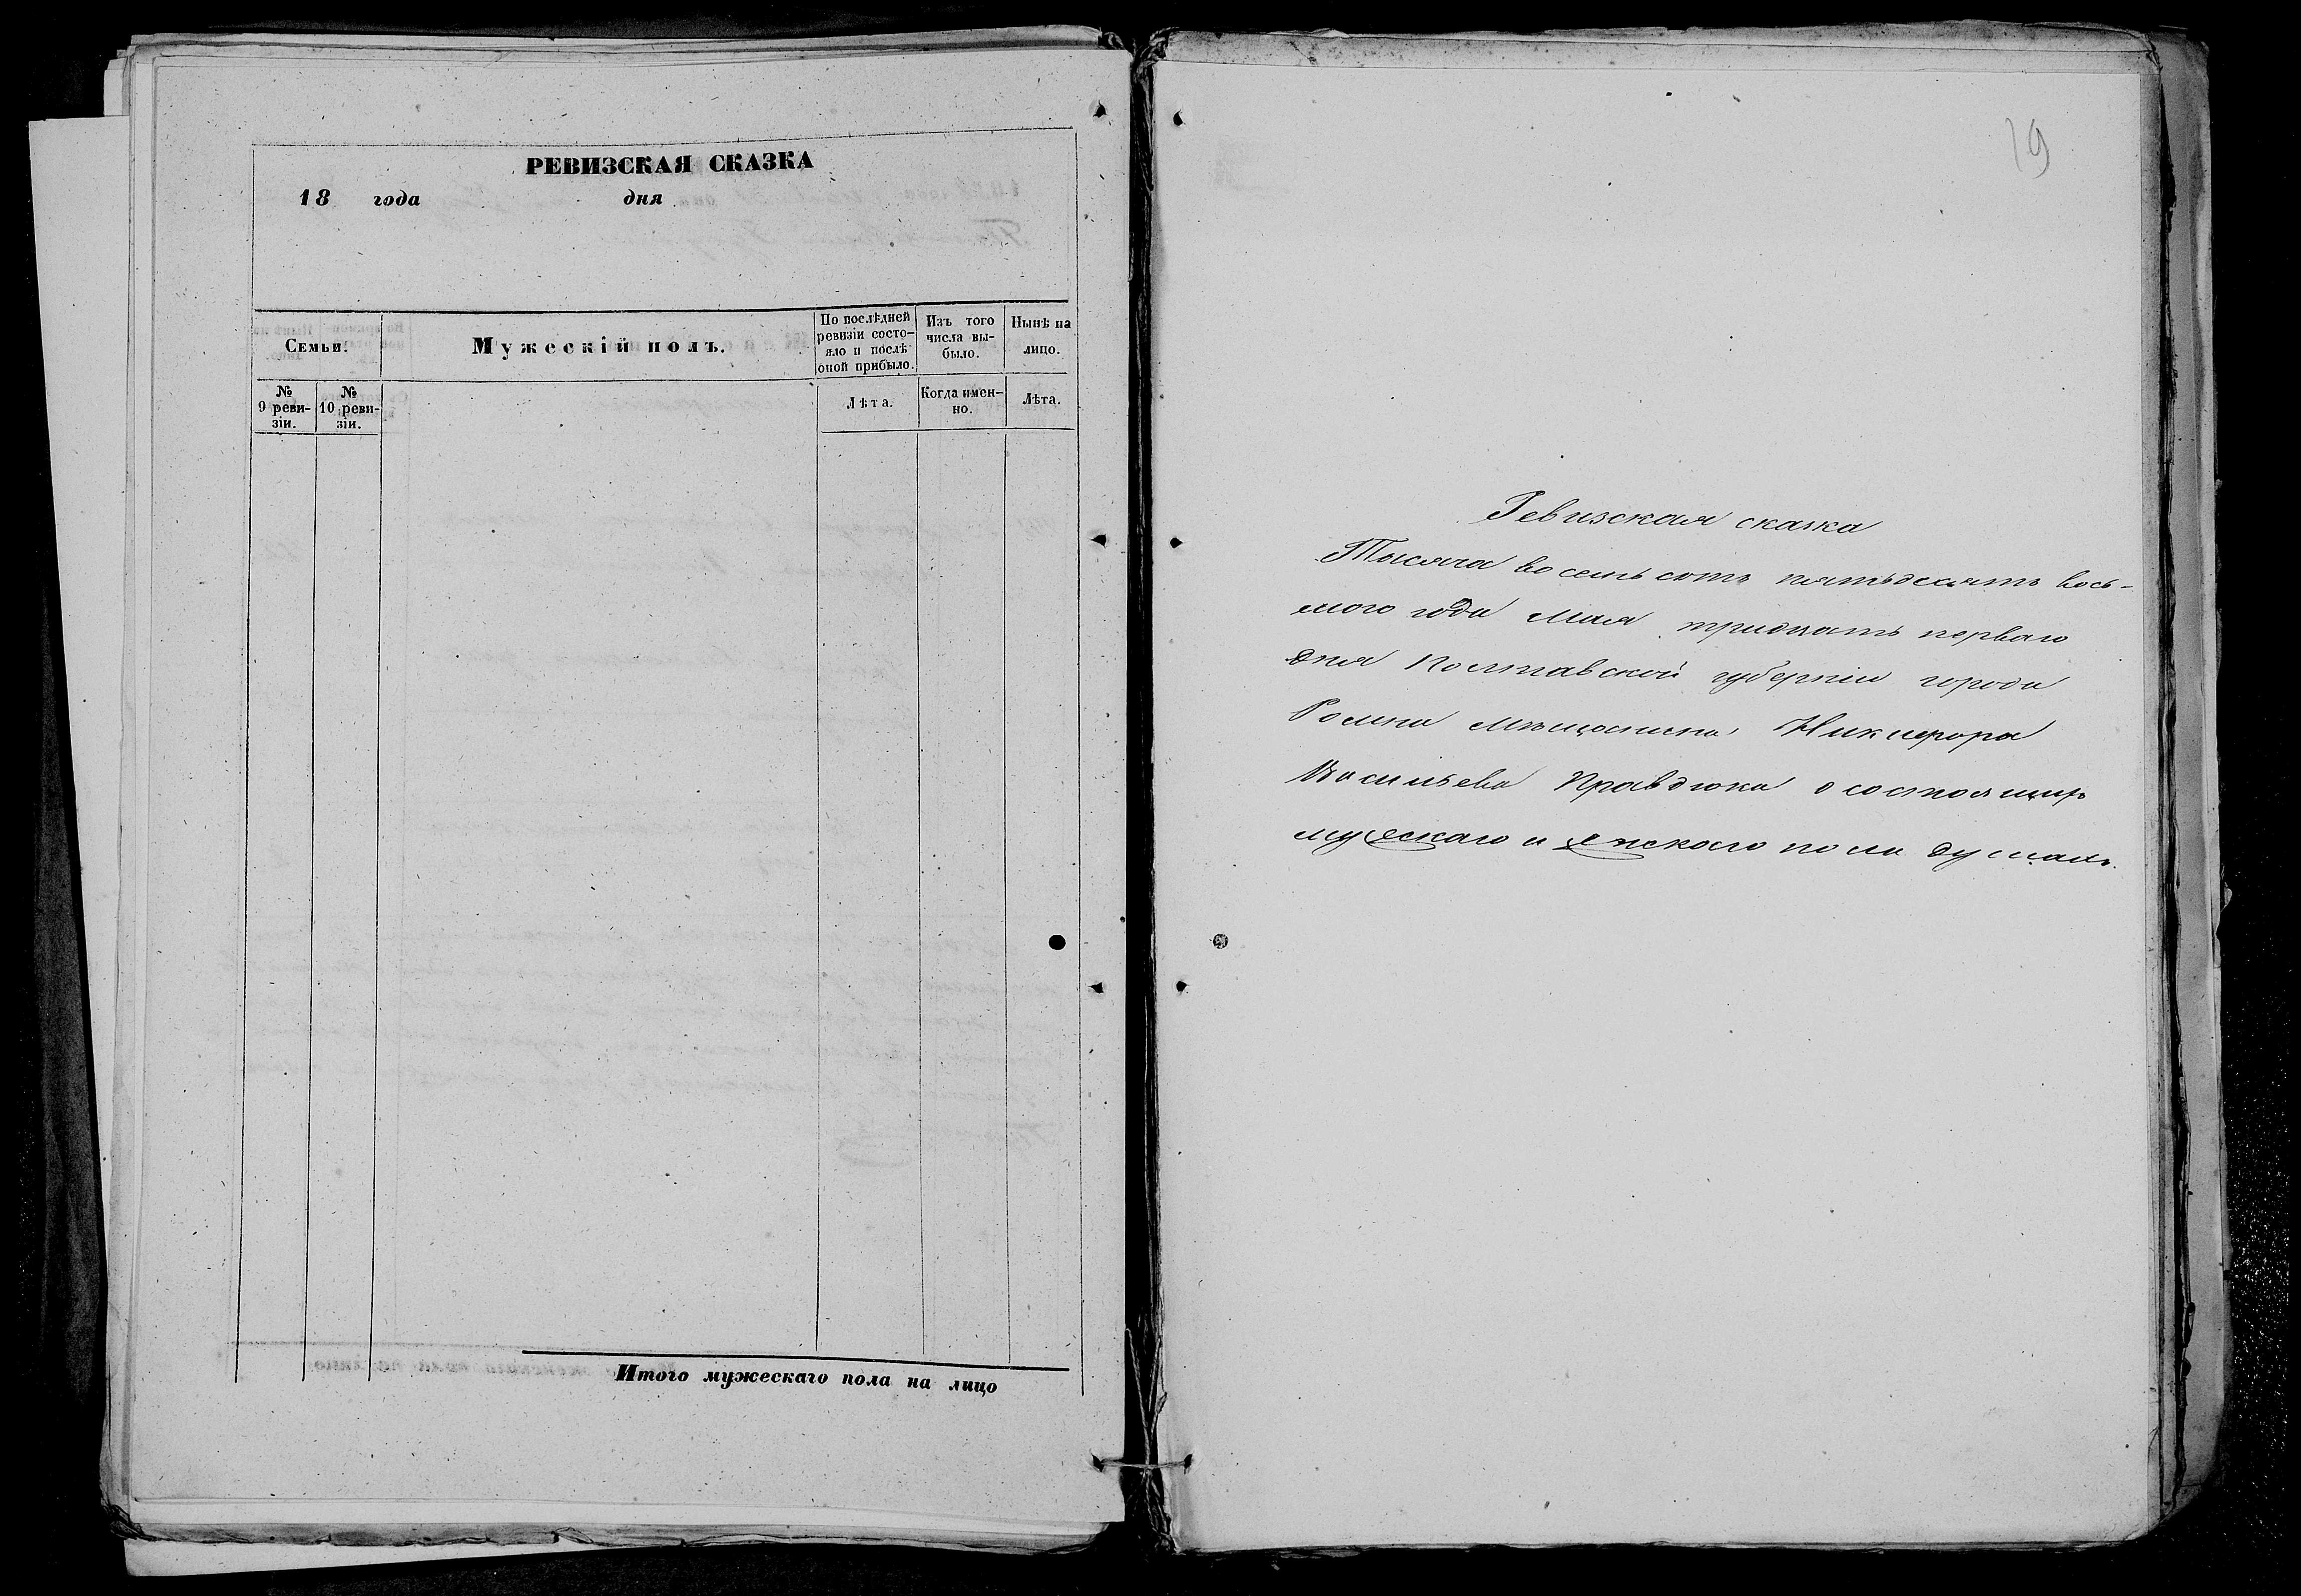 РЕВИЗСКАЯ СКАЗКА
18 года дня
Семьи.
Мужескій полъ.
По послѣдней ревизіи состо-
яло и послѣ оной прибыло.
Изъ того числа вы-
было.
Нынѣ на лицо.
№ 9 реви-
зіи.
№ 10 реви-
зіи.
Лѣта.
Когда имен-
но.
Лѣта.
Итого мужескаго пола на лицо
19
Ревизская сказка
Тысяча восемьсотъ пятьдесятъ вось-
мого года Мая тридцать перваго
дня Полтавской губерніи города
Ромна мѣщанина Никифора
Васильева Правдюка о состоящихъ
мужескаго и женскаго пола душахъ.